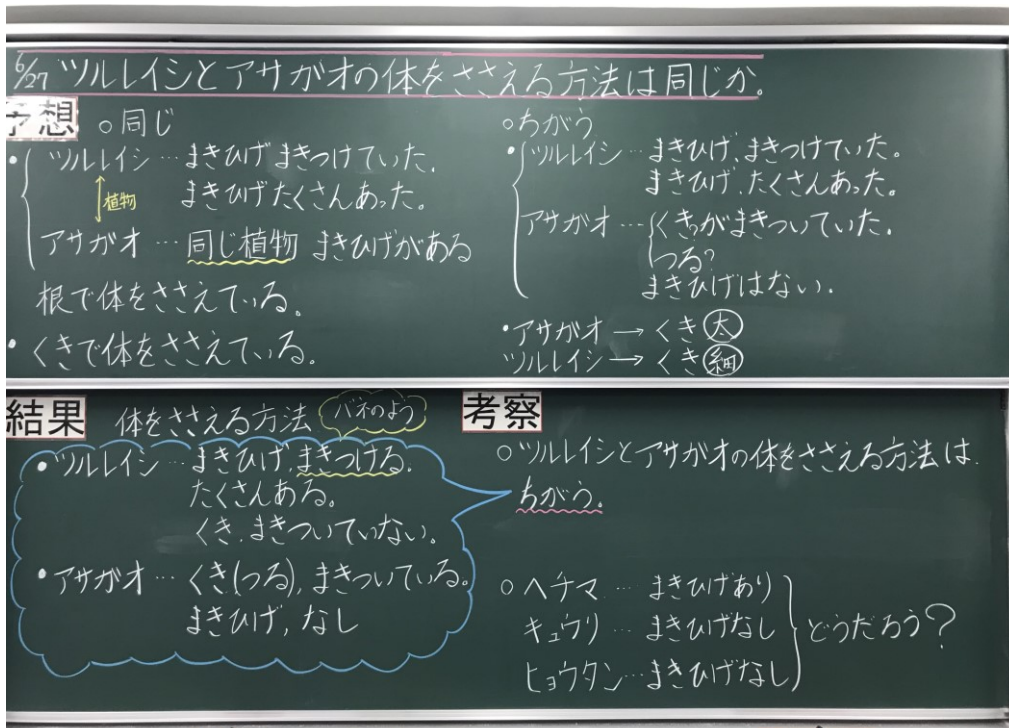 6/27 ツルレイシとアサガオの体をささえる方法は同じか。
予想
○同じ
・ツルレイシ…まきひげまきつけていた。
まきひげたくさんあった。
植物
アサガオ…同じ植物 まきひげがある
根で体をささえている。
・くきで体をささえている。
○ちがう
・ツルレイシ…まきひげ、まきつけていた。
まきひげ、たくさんあった。
アサガオ…くきがまきついていた。
つる?
まきひげはない.
・アサガオ→くき太
ツルレイシ→くき細
結果
体をささえる方法
バネのよう
・ツルレイシ…まきひげ,まきつける.
たくさんある。
くき,まきついていない。
・アサガオ…くき(つる),まきついている。
まきひげ,なし
考察
○ツルレイシとアサガオの体をささえる方法は、
ちがう。
○ヘチマ…まきひげあり
キュウリ…まきひげなし
ヒョウタン…まきひげなし
どうだろう?